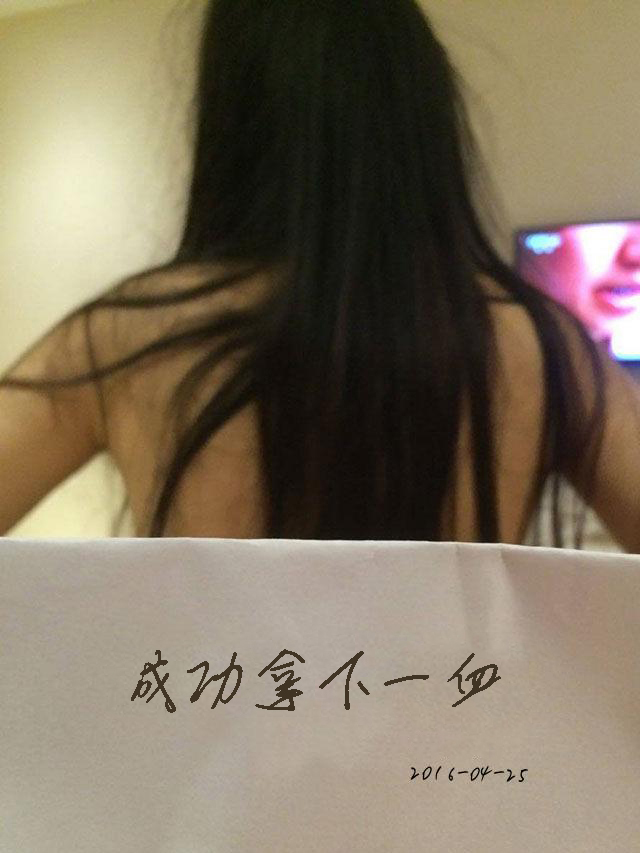 成功拿下一血
2016-04-25